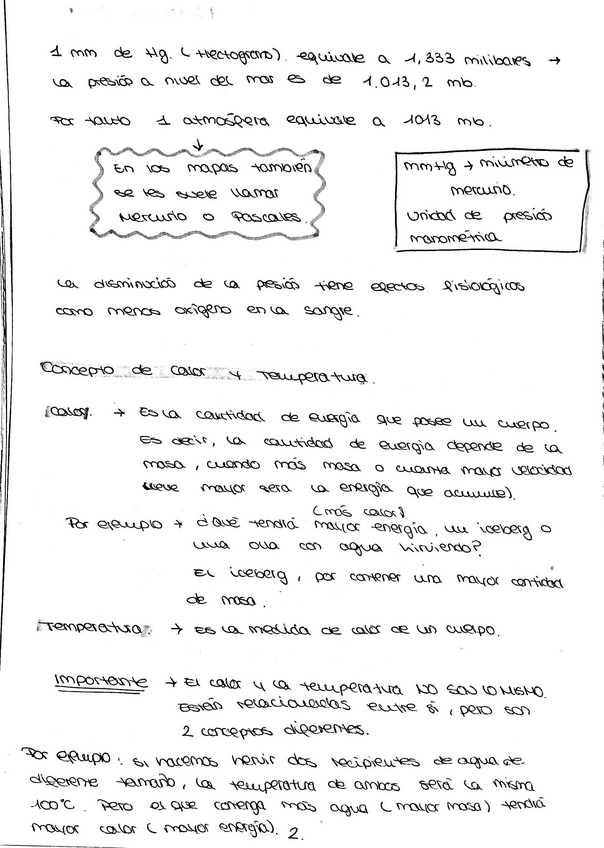 1 mm de Hg. (Hectogramo). equivale a 1,333 milibares →
La presión a nivel del mar es de 1.013,2 mb.
Por tanto 1 atmósfera equivale a 1013 mb.
En los mapas también
se les suele llamar
Mercurio o Pascales.
mmHg → milímetro de
mercurio.
Unidad de presión
manométrica
La disminución de la presión tiene efectos fisiológicos
como menos oxígeno en la sangre.
Concepto de calor y Temperatura.
Calor: → Es la cantidad de energía que posee un cuerpo.
Es decir, la cantidad de energía depende de la
masa, cuando más masa o cuanta mayor velocidad
lleve mayor será la energía que acumule).
(más calor)
Por ejemplo → ¿Qué tendrá mayor energía, un iceberg o
una olla con agua hirviendo?
El iceberg, por contener una mayor cantidad
de masa.
Temperatura: → Es la medida de calor de un cuerpo.
Importante → El calor y la temperatura NO SON LO MISMO.
Están relacionadas entre sí, pero son
2 conceptos diferentes.
Por ejemplo: si hacemos hervir dos recipientes de agua de
diferente tamaño, la temperatura de ambos será la misma
100°C. Pero el que contenga más agua (mayor masa) tendrá
mayor calor (mayor energía).
2.